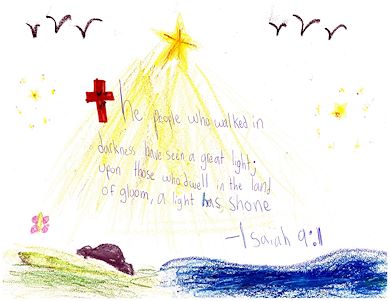 The people who walked in
darkness have seen a great light;
upon those who dwell in the land
of gloom, a light has shone
-Isaiah 9:1